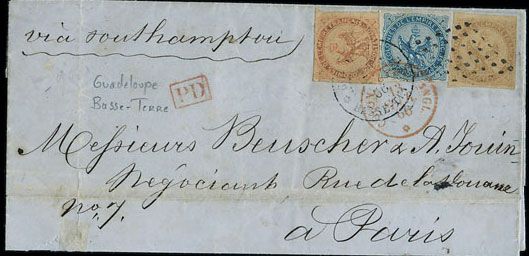 via Southampton
Guadeloupe
Basse-Terre
PD
Messieurs Beuscher & A. Jouin
Négociant Rue de la Douane
no 7.
à Paris